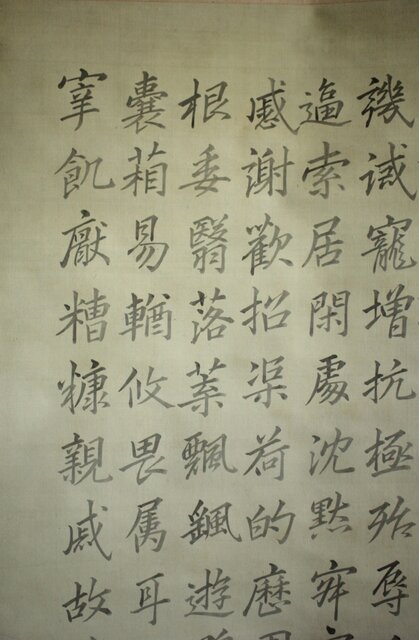 譏誡寵增抗極殆辱
逼索居閑處沈默寂
慼謝歡招渠荷的歷
根委翳落葉飄颻遊
囊箱易輶攸畏属耳
宰飢厭糟糠親戚故